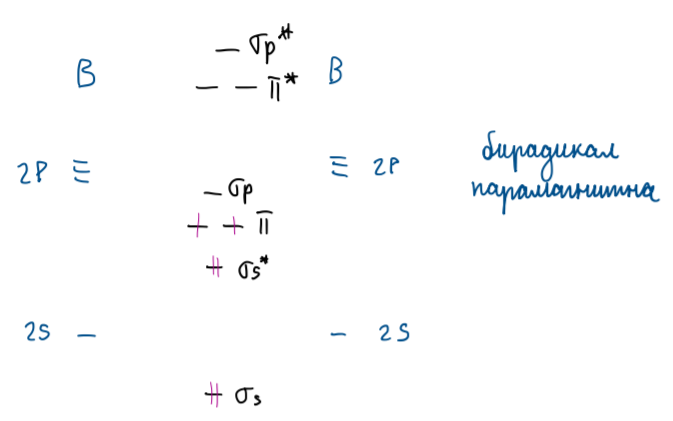 σp*
B
B
π*
2P
2P
бирадикал
парамагнитна
σp
π
σs*
2S
2S
σs